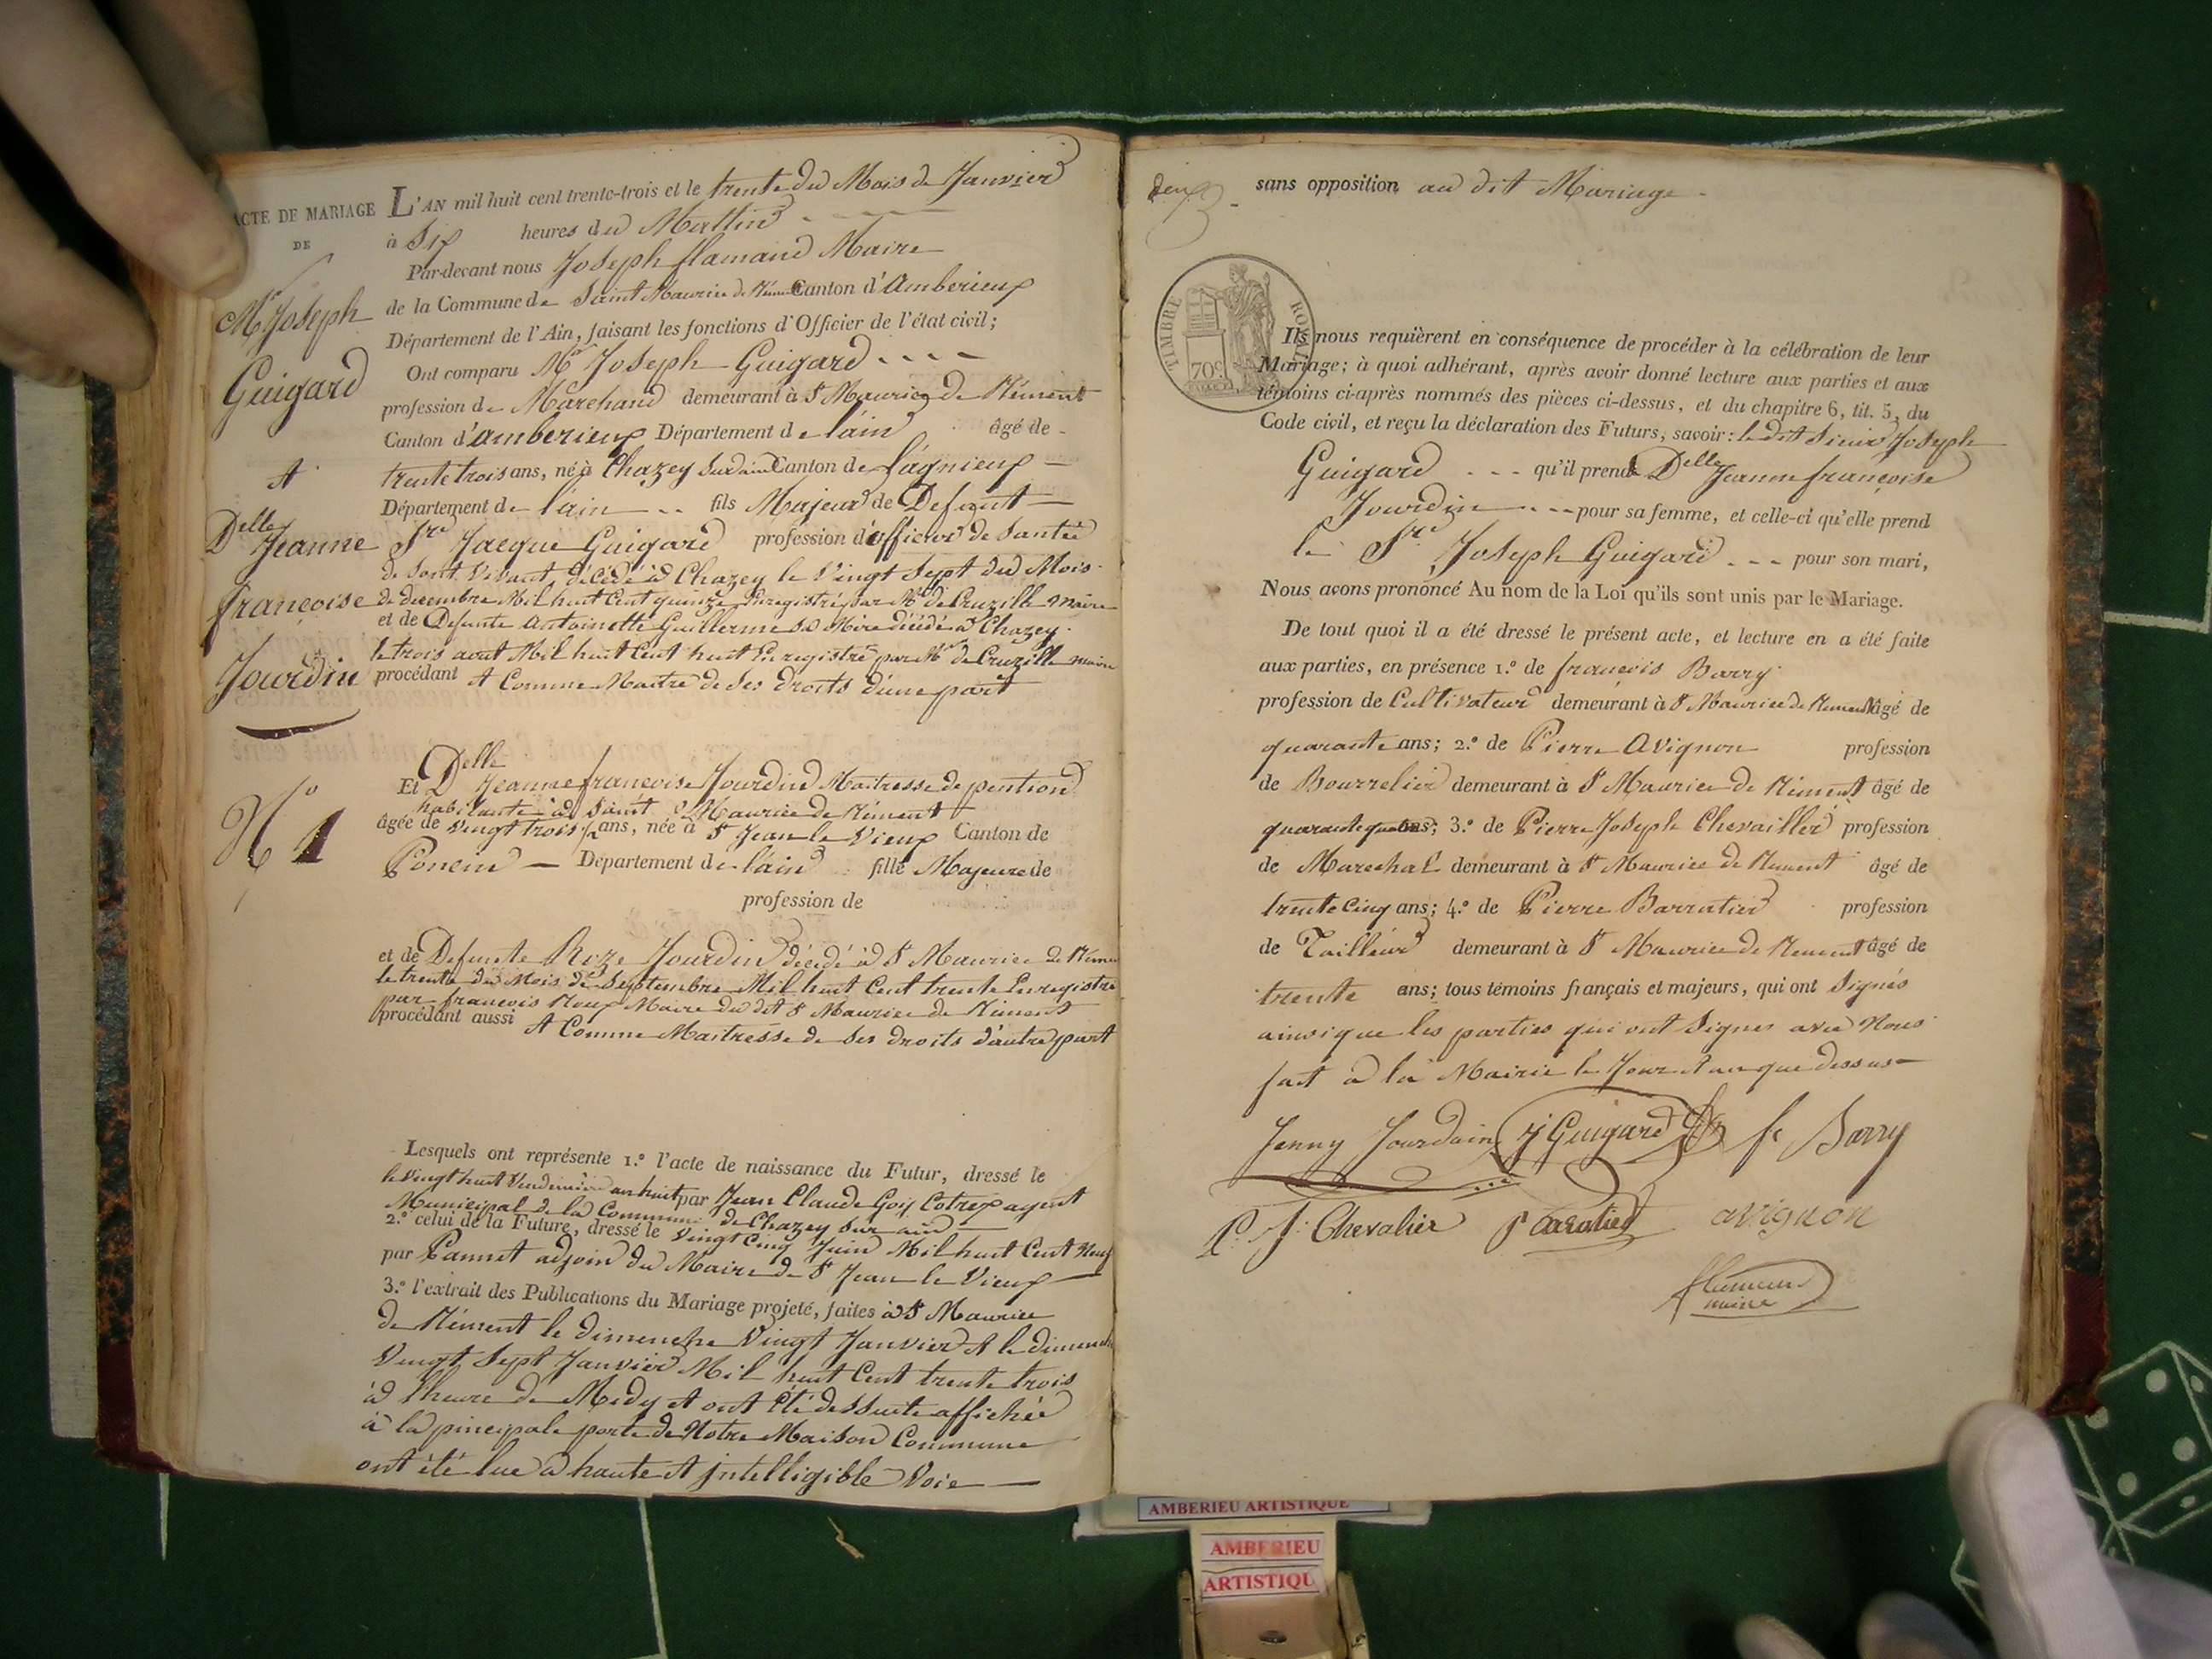 ACTE DE MARIAGE
DE
Mr Joseph
Guigard
Et
Delle Jeanne
françoise
Jourdin
N° 1
L'AN mil huit cent trente-trois et le trente du Mois de Janvier
à Six heures du Mattin
Par-devant nous Joseph flamand Maire
de la Commune de Saint Maurice de Rément Canton d'Amberieux
Département de l'Ain, faisant les fonctions d'Officier de l'état civil;
Ont comparu Mr Joseph Guigard
profession de Marchand demeurant à St Maurice de Rément
Canton d'amberieux Département de l'ain âgé de
trente trois ans, né à Chazey Sur ain Canton de Lagnieux
Département de l'ain fils Majeur de Defunt
Sre Jacque Guigard profession d'officier de Santée
de Sont Vivant décédé à Chazey le Vingt Sept du Mois
de decembre Mil huit Cent quinze Enregistré par Mr de Cruzille Maire
et de Defunte Antoinette Guillerme Sa Mère décédé à Chazey
le trois aout Mil huit Cent huit Enregistré par Mr de Cruzille maire
procédant Et Comme Maitre de Ses Droits d'une part
Et Delle Jeanne francoise Jourdin Maitresse de pention
habitante à Saint Maurice de Rément
âgée de Vingt trois ans, née à St Jean le Vieux Canton de
Poncin Département de l'ain fille Majeure de
profession de
et de Defunte Roze Jourdin décédé à St Maurice de Rément
le trente du Mois de Septembre Mil huit Cent trente Enregistré
par francois Roux Maire du dit St Maurice de Rément
procédant aussi Et Comme Maitresse de Ses droits d'autre part
Lesquels ont représente 1.º l'acte de naissance du Futur, dressé le
le Vingt huit Vendemiaire an huit par Jean Claude Goy Cotrex agent
Municipal de la Commune de Chazey Sur ain
2.º celui de la Future, dressé le Vingt Cinq Juin Mil huit Cent Neuf
par Pannet adjoin du Maire de St Jean le Vieux
3.º l'extrait des Publications du Mariage projeté, faites à St Maurice
de Rément le dimenche Vingt Janvier Et le dimenche
Vingt Sept Janvier Mil huit Cent trente trois
à l'heure de Midy Et ont été dessuite affichée
à la pincipale porte de Notre Maison Commune
ont été lue à haute Et intelligible Voie
sans opposition au dit Mariage
TIMBRE ROYAL
70c
Ils nous requièrent en conséquence de procéder à la célébration de leur
Mariage; à quoi adhérant, après avoir donné lecture aux parties et aux
témoins ci-après nommés des pièces ci-dessus, et du chapitre 6, tit. 5, du
Code civil, et reçu la déclaration des Futurs, savoir: le dit Sieur Joseph
Guigard qu'il prend Delle Jeanne françoise
Jourdin pour sa femme, et celle-ci qu'elle prend
le Sre Joseph Guigard pour son mari,
Nous avons prononcé Au nom de la Loi qu'ils sont unis par le Mariage.
De tout quoi il a été dressé le présent acte, et lecture en a été faite
aux parties, en présence 1.º de françois Barry
profession de Cultivateur demeurant à St Maurice de Rément âgé de
quarante ans; 2.º de Pierre Avignon profession
de Bourrelier demeurant à St Maurice de Rément âgé de
quarante quatre ans; 3.º de Pierre Joseph Chevailler profession
de Marechal demeurant à St Maurice de Rément âgé de
trente Cinq ans; 4.º de Pierre Barratier profession
de Tailleur demeurant à St Maurice de Rément âgé de
trente ans; tous témoins français et majeurs, qui ont Signés
ainsi que les parties qui ont Signer avec Nous
fait à la Mairie le Jour Et an que dessus
Jenny Jourdain J Guigard fs Barry
P. J. Chevalier P Baratier avignon
flamand
maire
AMBERIEU ARTISTIQUE
AMBERIEU
ARTISTIQU